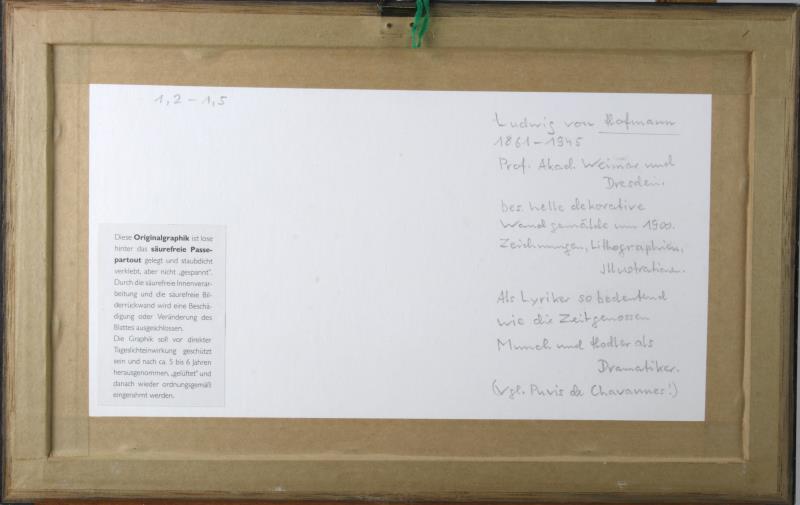 1,2 – 1,5
Ludwig von Hofmann
1861 – 1945
Prof. Akad. Weimar und
Dresden.
bes. helle dekorative
Wandgemälde um 1900.
Zeichnungen, Lithographien,
Illustrationen.
Als Lyriker so bedeutend
wie die Zeitgenossen
Munch und Hodler als
Dramatiker.
(Vgl. Puvis de Chavannes!)
Diese Originalgraphik ist lose
hinter das säurefreie Passe-
partout gelegt und staubdicht
verklebt, aber nicht „gespannt".
Durch die säurefreie Innenverar-
beitung und die saurefreie Bil-
derrückwand wird eine Beschä-
digung oder Veränderung des
Blattes ausgeschlossen.
Die Graphik soll vor direkter
Tageslichteinwirkung geschützt
sein und nach ca. 5 bis 6 Jahren
herausgenommen, „gelüftet" und
danach wieder ordnungsgemäß
eingerahmt werden.